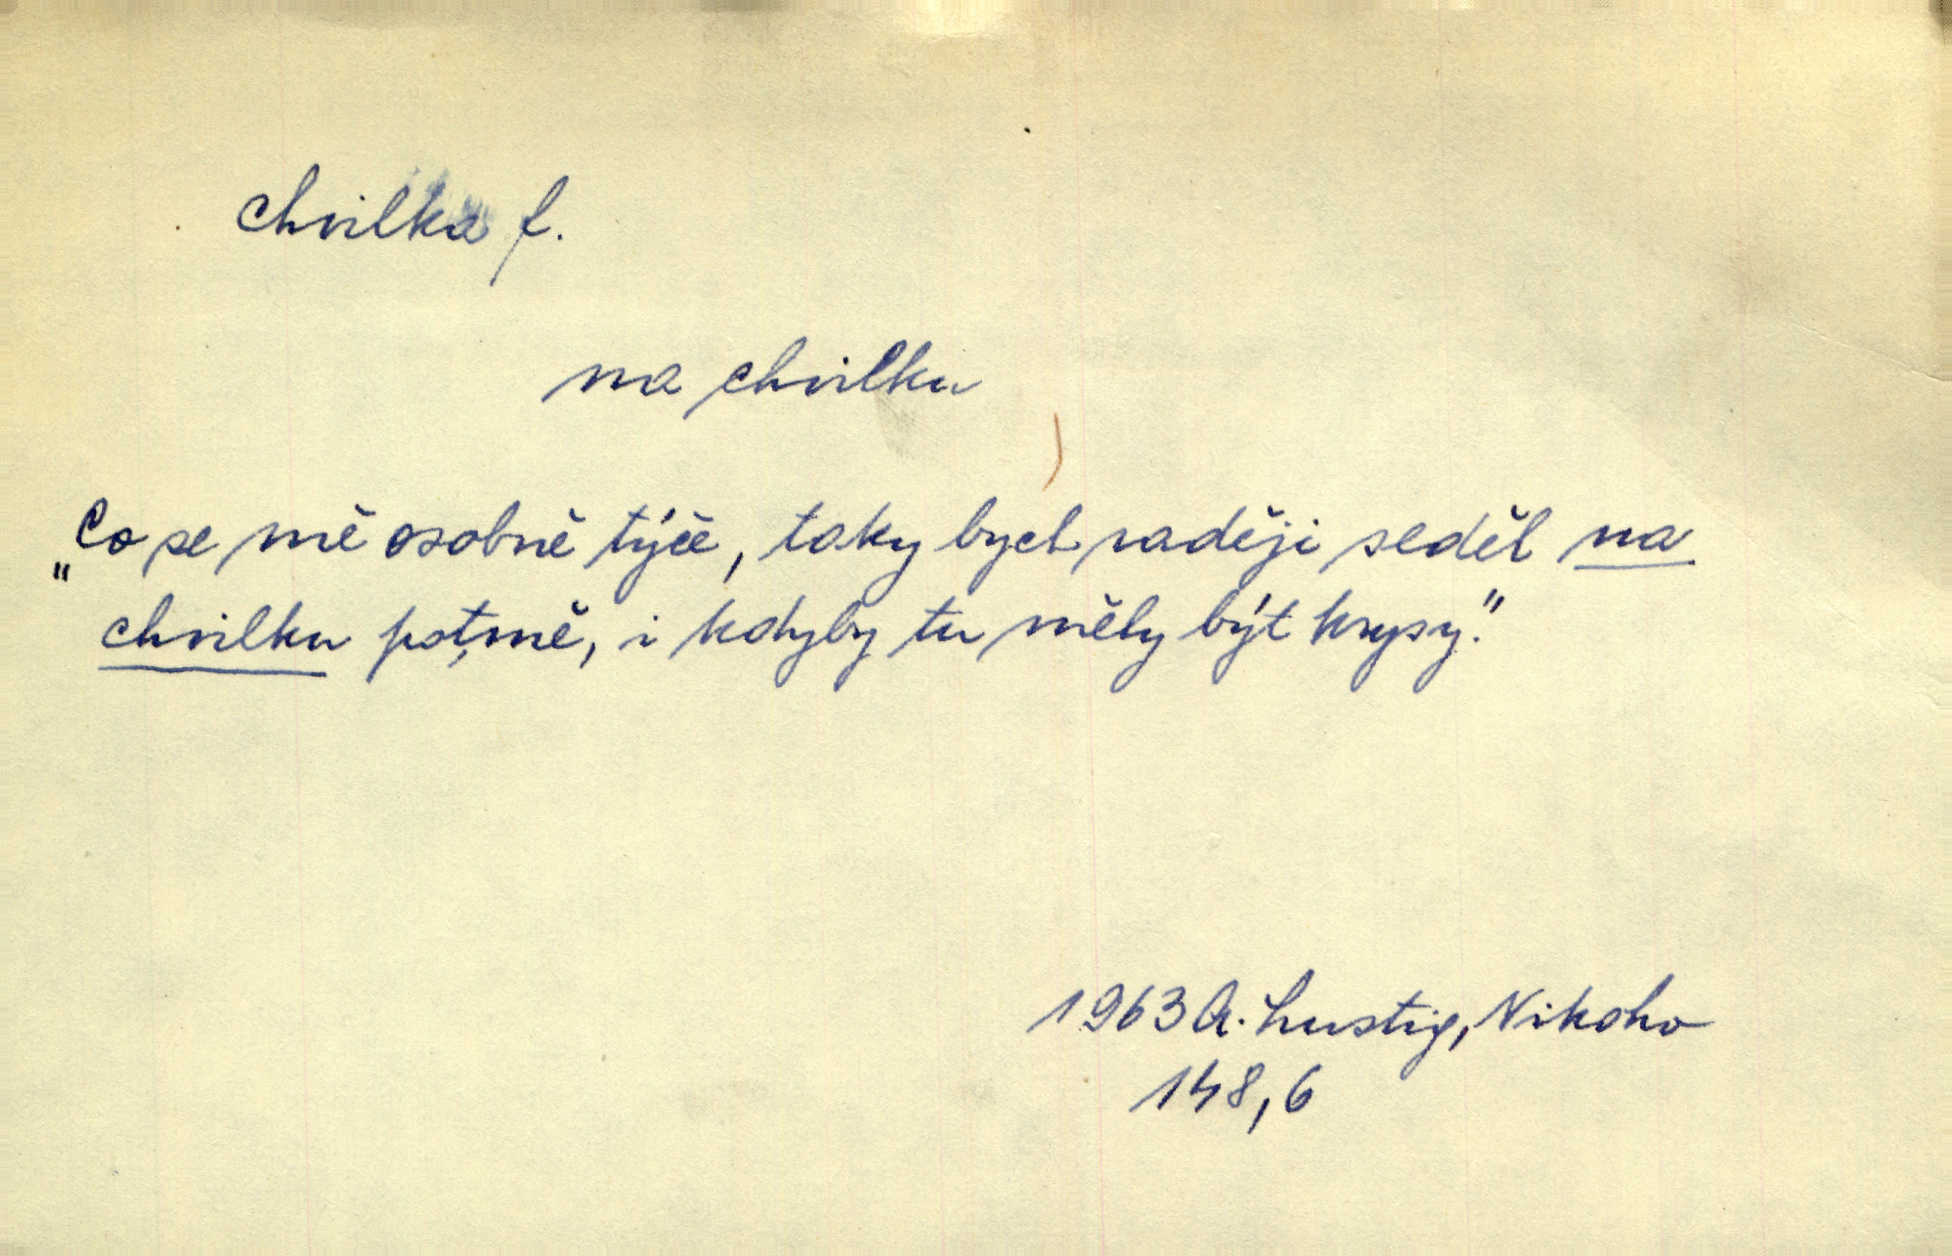 chvilka f.
na chvilku
„Co se mě osobně týče, taky bych raději seděl na
chvilku potmě, i kdyby tu měly být krysy."
1963 A. Lustig, Nikoho
148,6